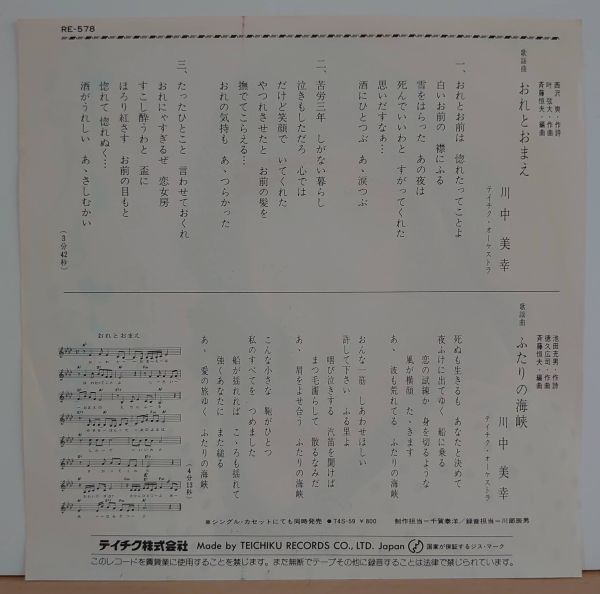 RE-578
歌謡曲
おれとおまえ
西沢 爽・作詩
叶 弦大・作曲
斉藤恒夫・編曲
川中美幸
テイチク・オーケストラ
一、おれとお前は 惚れたってことよ
白いお前の 襟にふる
雪をはらった あの夜は
死んでいいわと すがってくれた
思いだすなぁ…
酒にひとつぶ あゝ涙つぶ
二、苦労三年 しがない暮らし
泣きもしただろ 心では
だけど笑顔で いてくれた
やつれさせたと お前の髪を
撫でてこらえる…
おれの気持も あゝつらかった
三、たったひとこと 言わせておくれ
おれにゃすぎるぜ 恋女房
すこし酔うわと 盃に
ほろり紅さす お前の目もと
惚れて 惚れぬく…
酒がうれしい あゝさしむかい
(3分42秒)
歌謡曲
ふたりの海峡
池田充男・作詩
徳久広司・作曲
斉藤恒夫・編曲
川中美幸
テイチク・オーケストラ
死ぬも生きるも あなたと決めて
夜ふけに出てゆく 船に乗る
恋の試練か 身を切るような
風が横顔 たゝきます
あゝ 波も荒れてる ふたりの海峡
おんな一筋 しあわせほしい
許して下さい ふる里よ
咽び泣きする 汽笛を聞けば
まつ毛濡らして 散るなみだ
あゝ 肩をよせ合う ふたりの海峡
こんな小さな 鞄がひとつ
私のすべてを つめました
船が揺れれば こゝろも揺れて
強くあなたに また縋る
あゝ 愛の旅ゆく ふたりの海峡
(4分13秒)
おれとおまえ
※シングル・カセットにても同時発売 ●T4S-59 ¥800
制作担当=千賀泰洋/録音担当=川部振男
テイチク株式会社 Made by TEICHIKU RECORDS CO., LTD. Japan 国家が保証するジス・マーク
このレコードを賃貸業に使用することを禁じます。また無断でテープその他に録音することは法律で禁じられています。